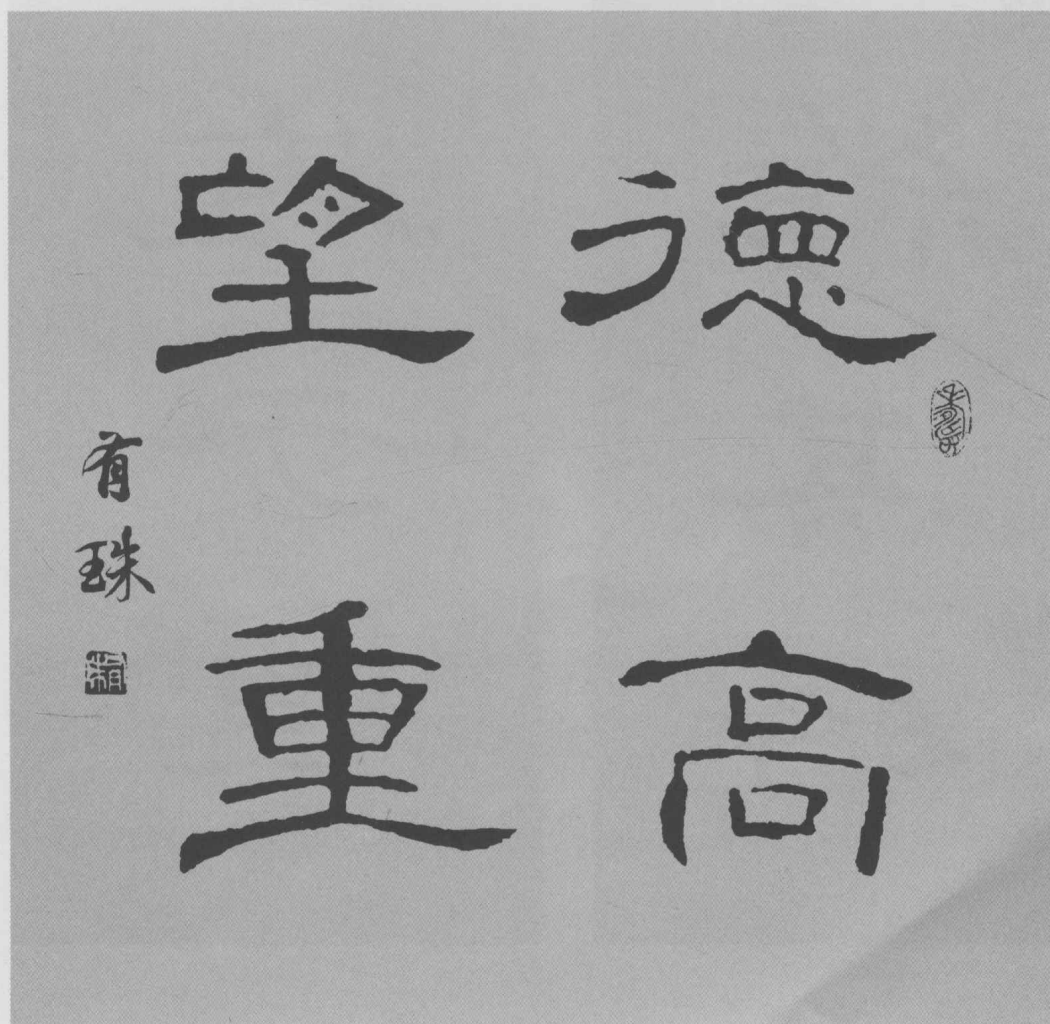 德高
望重
有珠